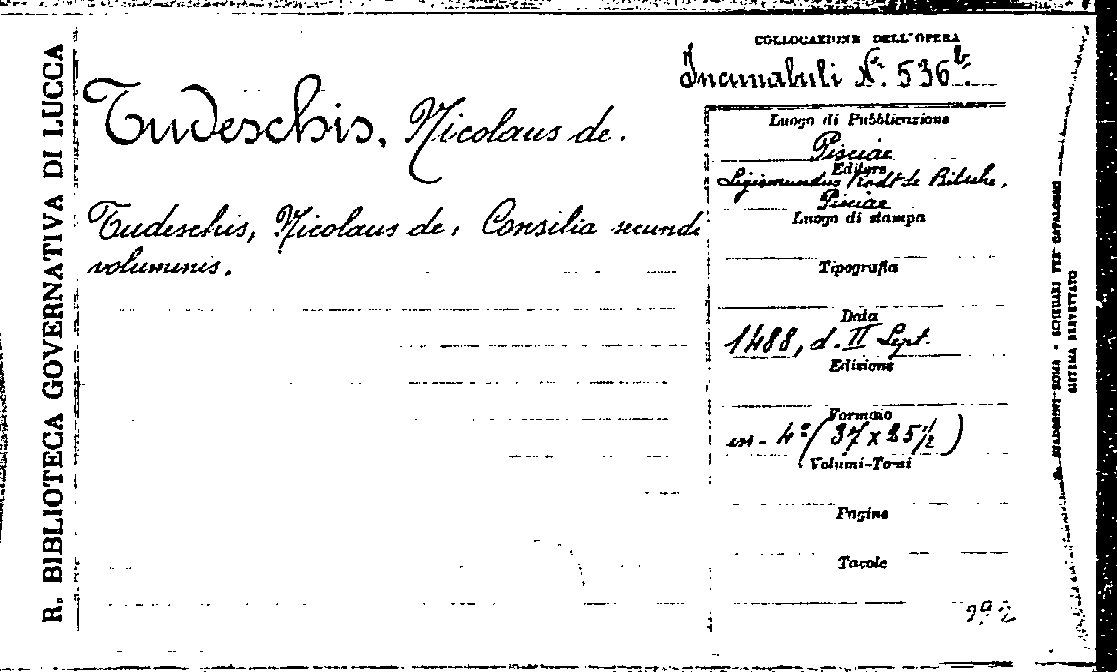 R. BIBLIOTECA GOVERNATIVA DI LUCCA
COLLOCAZIONE DELL'OPERA
Incunabuli N. 536 b.
Tudeschis, Nicolaus de.
Tudeschis, Nicolaus de, Consilia secundi
voluminis.
Luogo di Pubblicazione
Pisciae
Editore
Sigismundus Rodt de Bitsche.
Pisciae
Luogo di stampa
Tipografia
Data
1488, d. II Sept.
Edizione
Formato
in-4º (37 x 25 1/2)
Volumi-Tomi
Pagine
Tavole
292
ROMA - SCHEDARI PER CATALOGHI
SISTEMA BREVETTATO